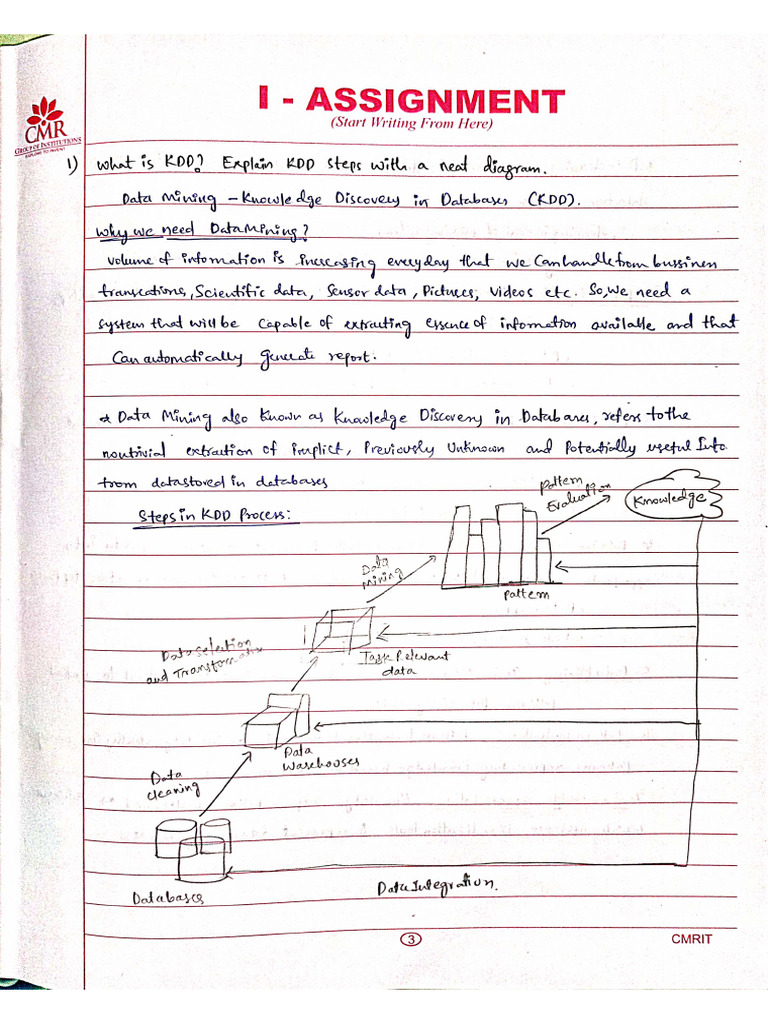 I - ASSIGNMENT
(Start Writing From Here)
CMR
GROUP OF INSTITUTIONS
EXPLORE TO INVENT
1) What is KDD? Explain KDD steps with a neat diagram.
Data Mining - Knowledge Discovery in Databases (KDD).
Why we need Data Mining?
Volume of information is increasing everyday that we can handle from bussinen
transcations, Scientific data, Sensor data, Pictures, Videos etc. So, we need a
system that will be capable of extracting essence of information available and that
can automatically generate report.
* Data Mining also known as Knowledge Discovery in Databases, refers to the
nontrivial extraction of implict, Previously Unknown and Potentially useful Info
from data stored in databases
Steps in KDD Process:
Pattern
Evaluation
Knowledge
Data
Mining
Pattern
Data Selection
and Transformation
Task Relevant
data
Data
Warehouses
Data
cleaning
Databases
Data Integration.
3
CMRIT